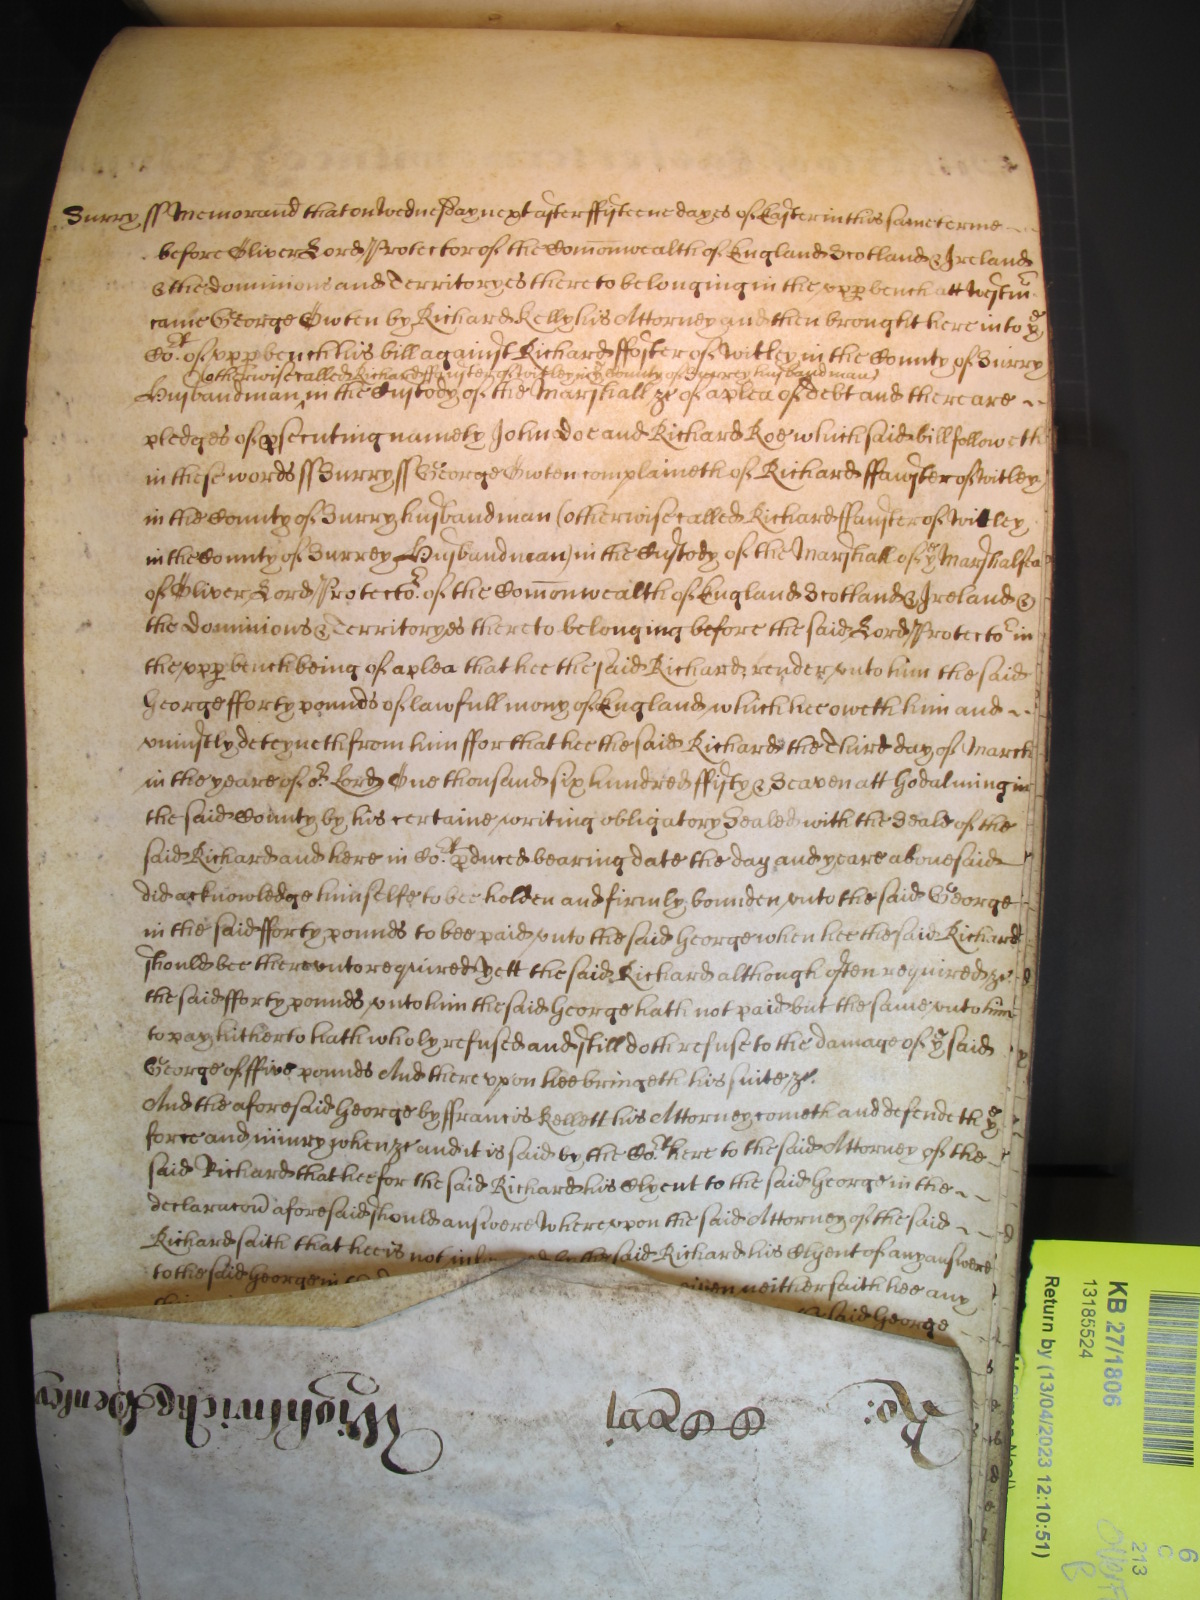 Surry ss Memorand that on wednesday next after ffifteene dayes of Easter in this same terme
before Oliver Lord Protector of the Comonwealth of England Scotland & Ireland
& the dominions and Territoryes thereto belonging in the upp bench att Westm
came George Owten by Richard Kelly his Attorney and then brought here into ye
Cort of upp bench his bill against Richard ffoster of Witley in the County of Surry
(otherwise called Richard ffauster of Witley in ye County of Surrey husbandman)
Husbandman in the Custody of the Marshall &c of a plea of debt and there are
pledges of psecuting namely John Doe and Richard Roe which said bill followeth
in these words ss Surry ss George Owten complaineth of Richard ffauster of Witley
in the County of Surry husbandman (otherwise called Richard ffauster of Witley
in the County of Surrey Husbandman) in the Custody of the Marshall of ye Marshalsea
of Oliver Lord Protector of the Comonwealth of England Scotland & Ireland &
the Dominions & Territoryes thereto belonging before the said Lord Protector in
the upp bench being of a plea that hee the said Richard render unto him the said
George fforty pounds of lawfull mony of England which hee oweth him and
uniustly deteyneth from him ffor that hee the said Richard the Third day of March
in the yeare of or Lord One thousand six hundred ffifty & Seaven att Godalming in
the said County by his certaine writing obligatory Sealed with the Seale of the
said Richard and here in Cort pduced bearing date the day and yeare abovesaid
did acknowledge himselfe to bee holden and firmly bounden unto the said George
in the said fforty pounds to bee paid unto the said George when hee the said Richard
should bee thereunto required Yett the said Richard although often required &c
the said fforty pounds unto him the said George hath not paid but the same unto him
to pay hitherto hath wholy refused and still doth refuse to the damage of ye said
George of ffive pounds And thereupon hee bringeth his suite &c.
And the aforesaid George by ffrancis Kellett his Attorney cometh and defendeth ye
force and iniury when &c and it is said by the Cort here to the said Attorney of the
said Richard that hee for the said Richard his Clyent to the said George in the
declaracon aforesaid should answere Whereupon the said Attorney of the said
Richard saith that hee is not said Richard his Clyent of any answere
to the said George in given neither saith hee any
said George
Ro:
Wightwicke
KB 27/1806
13185524
Return by (13/04/2023 12:10:51)
6
C
213